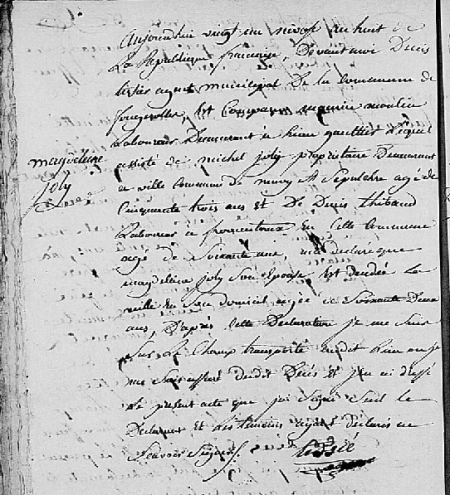 aujourdhui vingt un nivose an huit de
La Republique francaise, Devant moi Denis
agent municipal De la Commune de
fougerolles, Est Comparu moulin
Laboureur Demeurant a gaultier Lequel
assisté de michel joly propriétaire Demeurant
a ville Commune de neuvy St Sepulchre agé de
Cinquante trois ans et De Denis thibaud
Laboureur a En Cette Commune
agé de Soixante ans, m'a declaré que
magdeleine joly Son epouse Est decedée La
veille en Son domicil, agée de Soixante Deux
ans, D'apres cette Declaration je me Suis
Sur le Champ transporté audit lieu ou je
me Suis assuré dudit Décès Et j'en ai dressé
Le présent acte que j'ai Signé Seul le
Declarant et Les temoins ayant déclarés ne
Scavoir Signer
magdeleine
joly